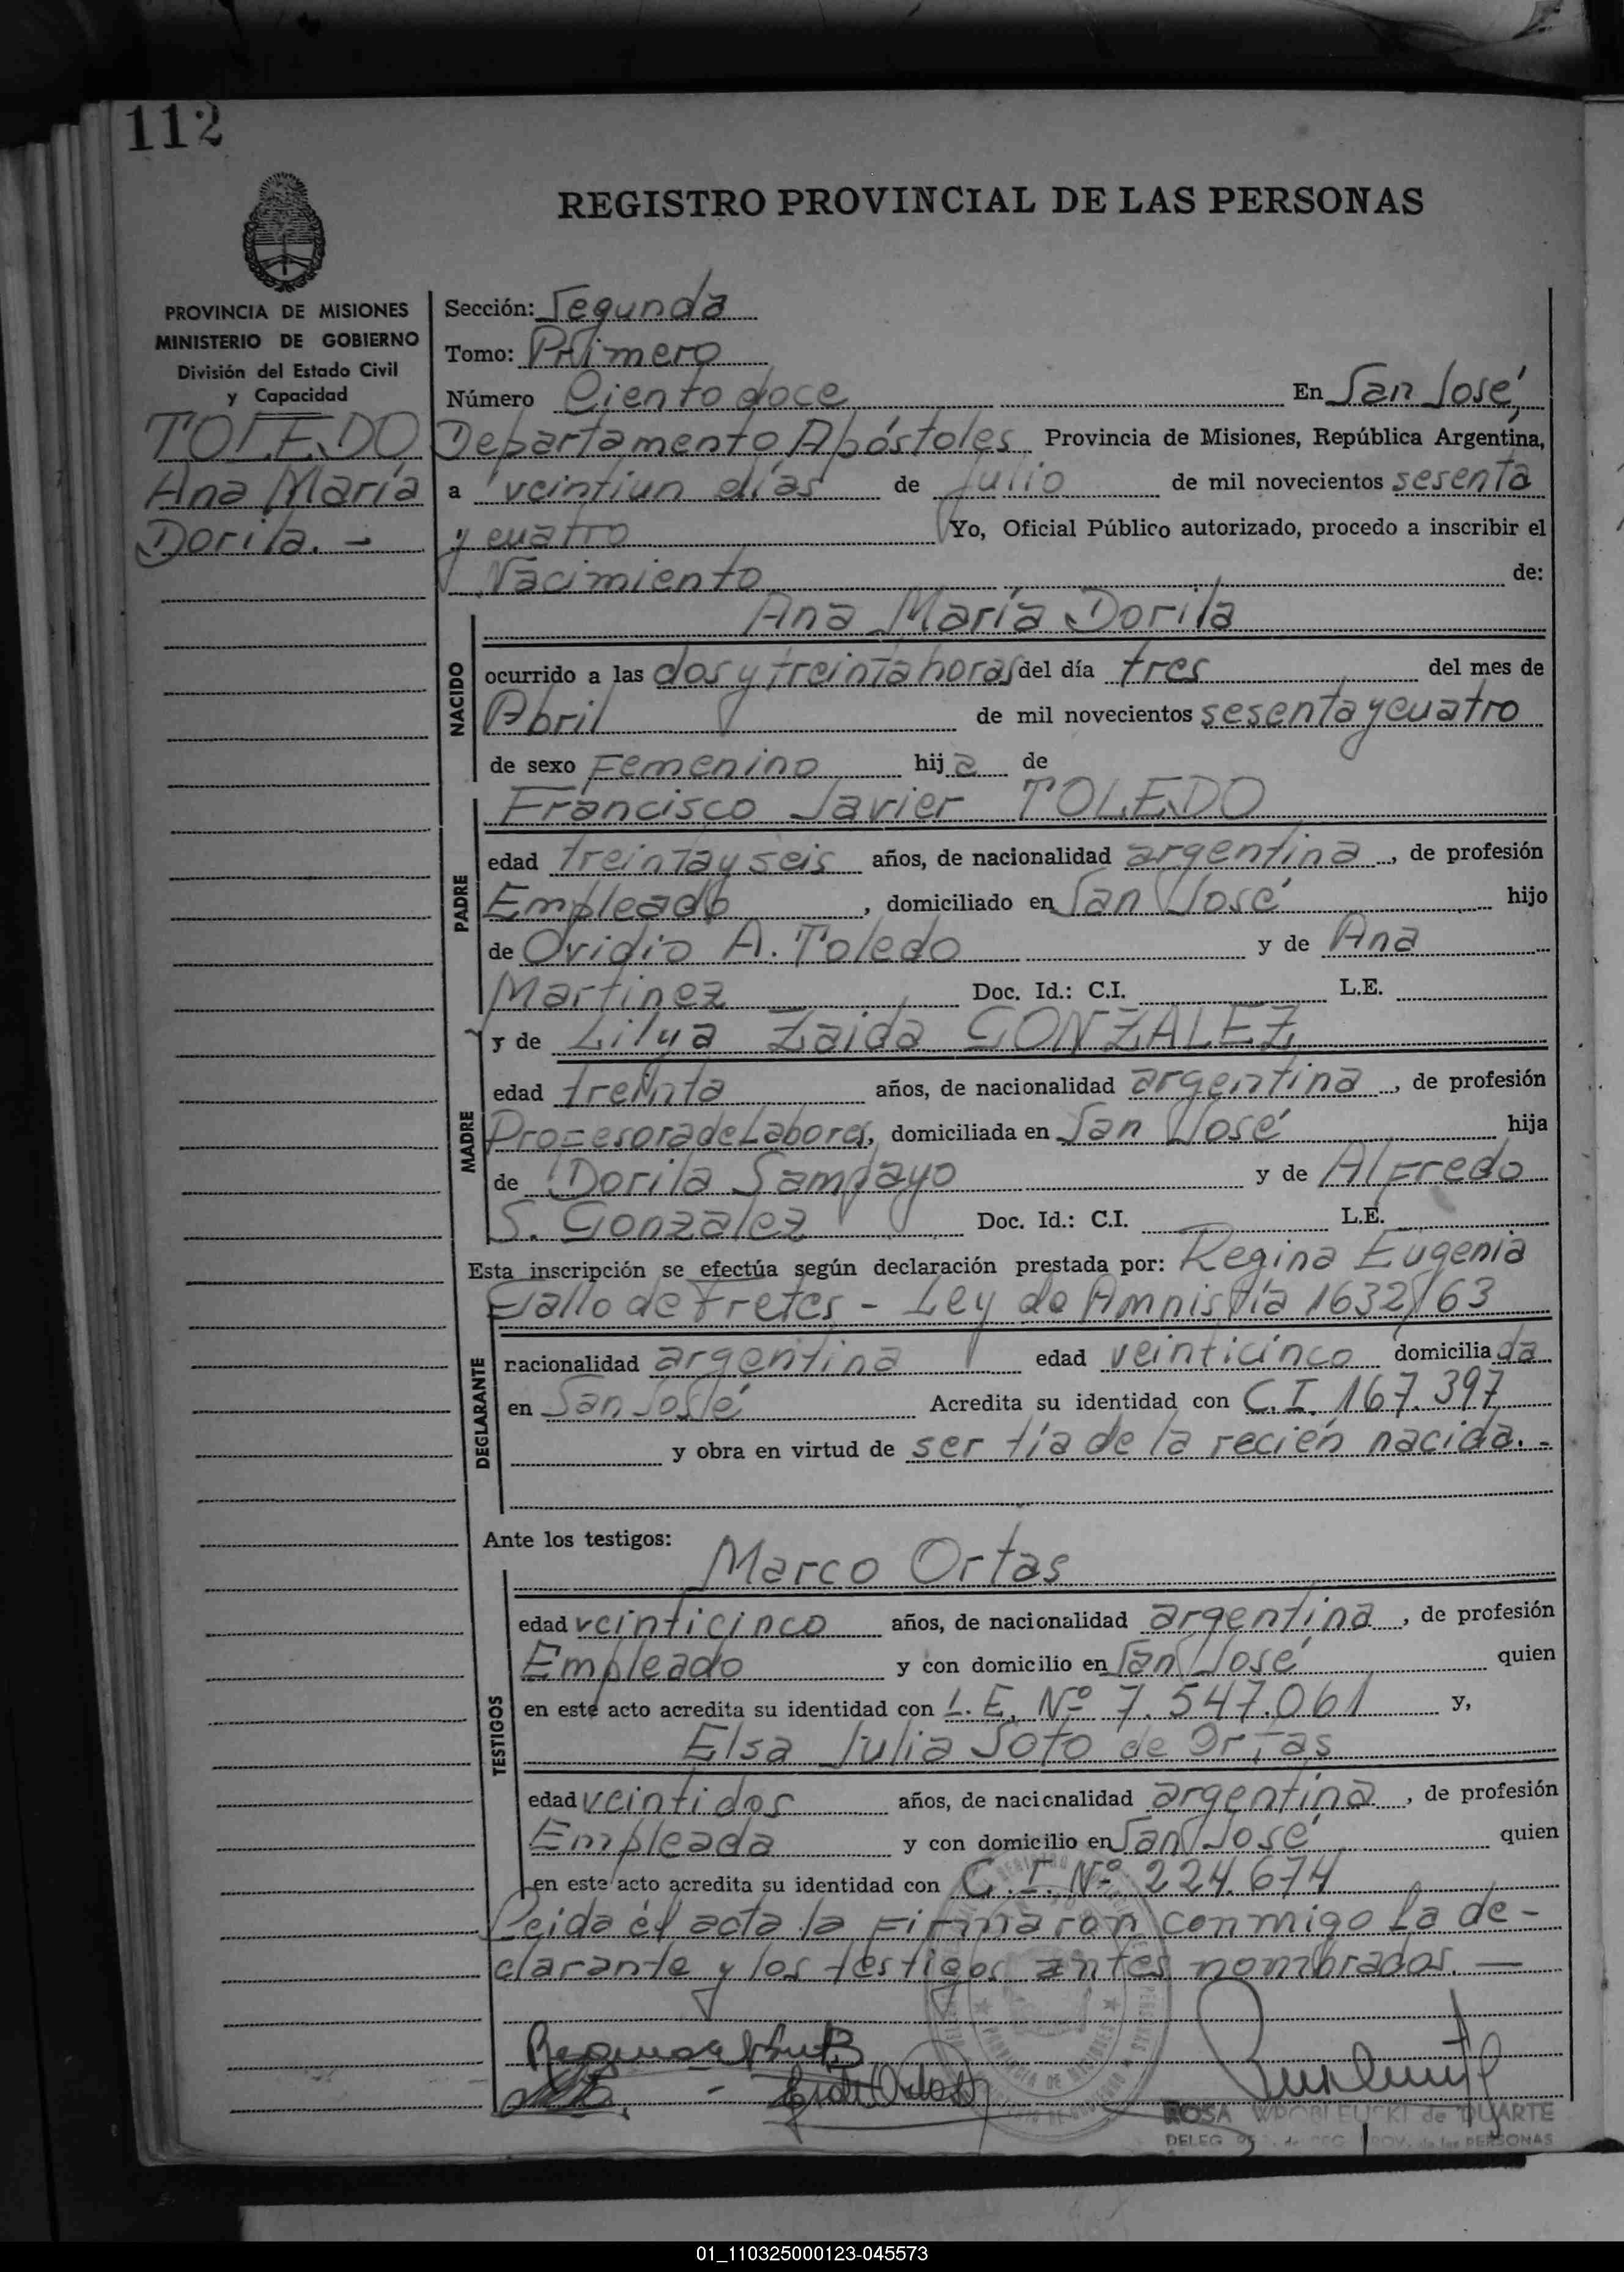 112
REGISTRO PROVINCIAL DE LAS PERSONAS
PROVINCIA DE MISIONES
MINISTERIO DE GOBIERNO
División del Estado Civil
y Capacidad
TOLEDO
Ana María
Dorila. -
Sección: Segunda
Tomo: Primero
Número Ciento doce En San José,
Departamento Apóstoles Provincia de Misiones, República Argentina,
a veintiun días de Julio de mil novecientos sesenta
y cuatro Yo, Oficial Público autorizado, procedo a inscribir el
Nacimiento de:
NACIDO
Ana María Dorila
ocurrido a las dos y treinta horas del día tres del mes de
Abril de mil novecientos sesenta y cuatro
de sexo Femenino hija de
PADRE
Francisco Javier TOLEDO
edad treinta y seis años, de nacionalidad argentina, de profesión
Empleado, domiciliado en San José hijo
de Ovidio A. Toledo y de Ana
Martinez Doc. Id.: C.I. L.E.
MADRE
y de Lilya Zaida GONZALEZ
edad treinta años, de nacionalidad argentina, de profesión
Profesora de Labores, domiciliada en San José hija
de Dorila Sampayo y de Alfredo
S. Gonzalez Doc. Id.: C.I. L.E.
Esta inscripción se efectúa según declaración prestada por: Regina Eugenia
Gallo de Fretes - Ley de Amnistía 1632/63
DECLARANTE
nacionalidad argentina edad veinticinco domiciliada
en San José Acredita su identidad con C.I. 167.397
y obra en virtud de ser tía de la recién nacida. -
Ante los testigos:
TESTIGOS
Marco Ortas
edad veinticinco años, de nacionalidad argentina, de profesión
Empleado y con domicilio en San José quien
en este acto acredita su identidad con L.E. Nº 7.547.061 y,
Elsa Julia Soto de Ortas
edad veintidos años, de nacionalidad argentina, de profesión
Empleada y con domicilio en San José quien
en este acto acredita su identidad con C.I. Nº 224.674
Leida el acta la firmaron conmigo la de-
clarante y los testigos antes nombrados. —
ROSA WROBLEUCKI de DUARTE
DELEG PROV. de las PERSONAS
01_110325000123-045573